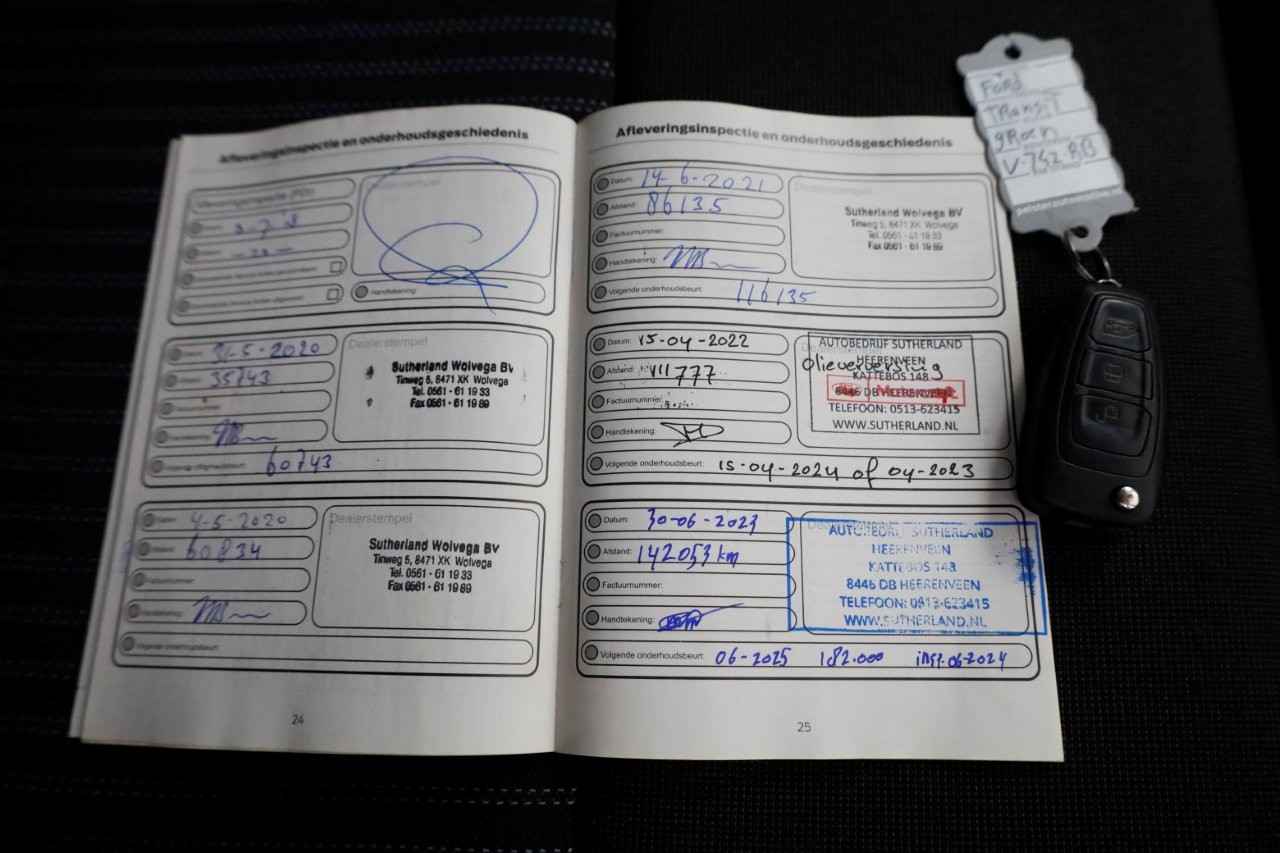 Afleveringsinspectie en onderhoudsgeschiedenis
Dealerstempel
Handtekening:
Datum:
31-5-2020
35743
Handtekening:
60743
Dealerstempel
Sutherland Wolvega BV
Tinweg 5, 8471 XK Wolvega
Tel. 0561 - 61 19 33
Fax 0561 - 61 19 89
Datum:
4-5-2020
60834
Factuurnummer:
Handtekening:
Volgende onderhoudsbeurt:
Dealerstempel
Sutherland Wolvega BV
Tinweg 5, 8471 XK Wolvega
Tel. 0561 - 61 19 33
Fax 0561 - 61 19 89
24
Afleveringsinspectie en onderhoudsgeschiedenis
Datum: 14-6-2021
Afstand: 86135
Factuurnummer:
Handtekening:
Volgende onderhoudsbeurt: 116135
Dealerstempel
Sutherland Wolvega BV
Tinweg 5, 8471 XK Wolvega
Tel. 0561 - 61 19 33
Fax 0561 - 61 19 89
Datum: 15-04-2022
Afstand: 111777
Factuurnummer:
Handtekening:
Volgende onderhoudsbeurt: 15-04-2024 of 04-2023
AUTOBEDRIJF SUTHERLAND
HEERENVEEN
olieverversing
KATTEBOS 148
8446 DB HEERENVEEN
TELEFOON: 0513-623415
WWW.SUTHERLAND.NL
Datum: 30-06-2023
Afstand: 142053 km
Factuurnummer:
Handtekening:
Volgende onderhoudsbeurt: 06-2025 182.000 insp. 06-2024
AUTOBEDRIJF SUTHERLAND
HEERENVEEN
KATTEBOS 148
8446 DB HEERENVEEN
TELEFOON: 0513-623415
WWW.SUTHERLAND.NL
25
Ford
Transit
gRoen
V-742-BB